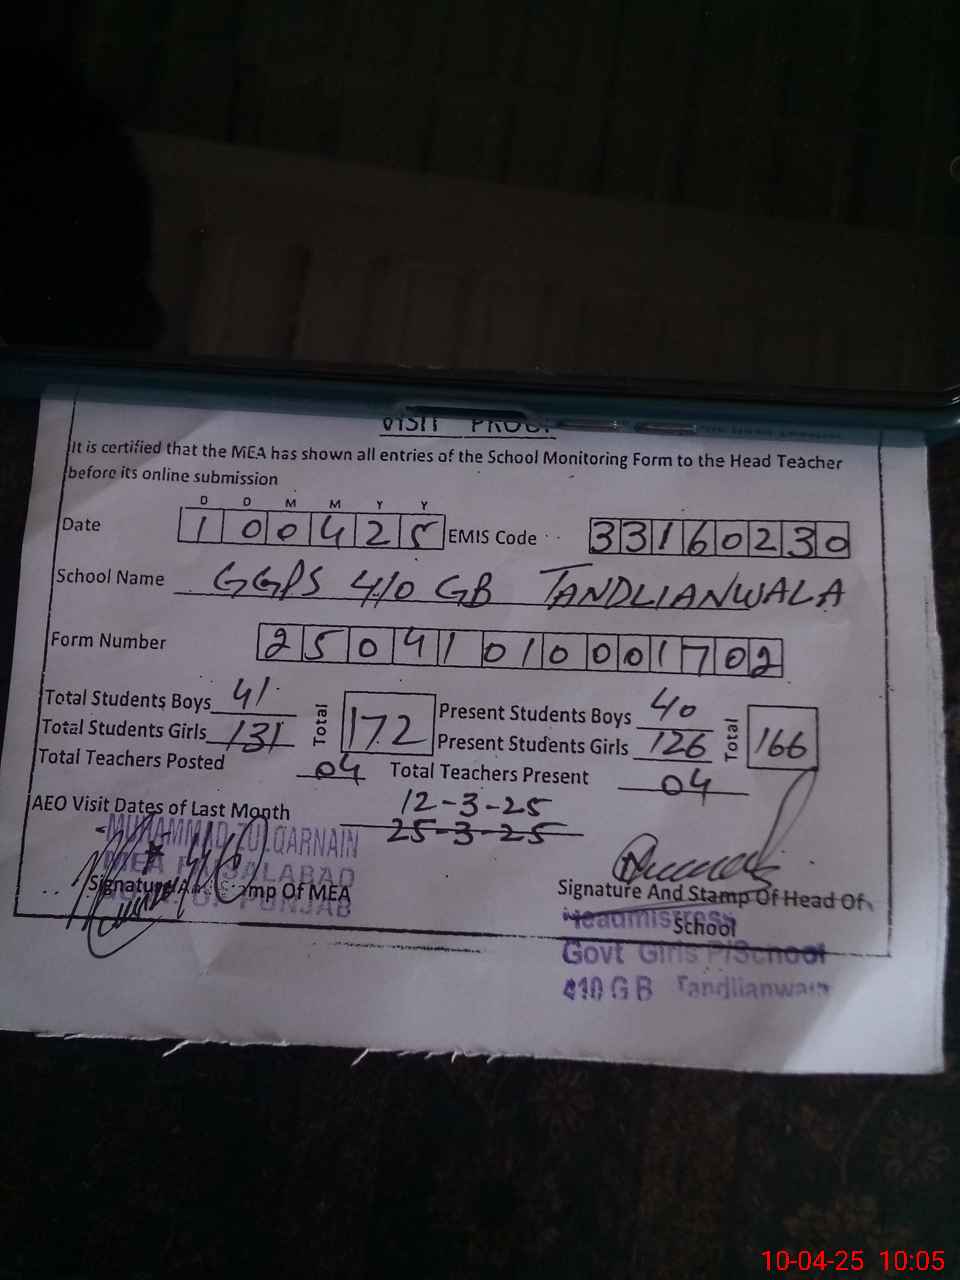 VISIT PROOF
It is certified that the MEA has shown all entries of the School Monitoring Form to the Head Teacher
before its online submission
D D M M Y Y
Date 100425 EMIS Code 33160230
School Name GGPS 410 GB TANDLIANWALA
Form Number 250410101001702
Total Students Boys 41 Total 172 Present Students Boys 40 Total 166
Total Students Girls 131 Present Students Girls 126
Total Teachers Posted 04 Total Teachers Present 04
AEO Visit Dates of Last Month 12-3-25
25-3-25
MUHAMMAD ZULQARNAIN
MEA FAISALABAD
Signature And Stamp Of MEA
GOVT OF PUNJAB
Signature And Stamp Of Head Of
School
Headmistress
Govt Girls P/School
410 G B Tandlianwala
10-04-25 10:05